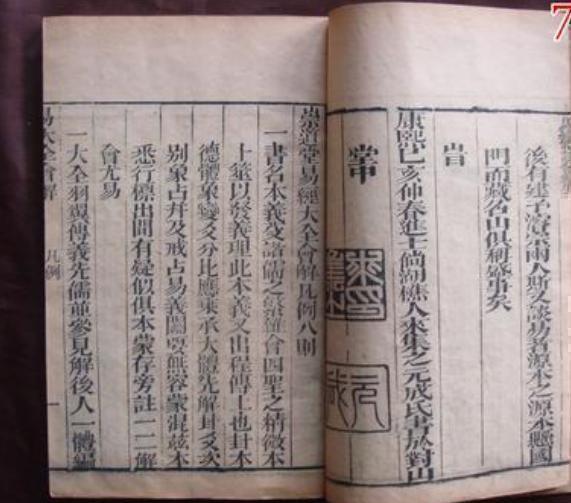 7
後有建子濵宗兩人斯文談易者源本之源本懸國
門而藏名山俱稱盛事矣
旹
康熙己亥仲春進士倘湖樵人來集之元成氏書於對山
堂中
崇道堂易經大全會解凡例八則
一書名本義及諸儒之會四聖之精微本
卜筮以發義理此本義又出程傳上也卦本
德體象變爻分比應乘承大體先解卦爻次
別象占并及戒占易義關要無容蒙混茲本
悉行標出間有疑似俱本蒙存旁註一一解
會尤易
一大全羽翼傳義先儒並參見解後人一體編
易大全會解
凡例
一